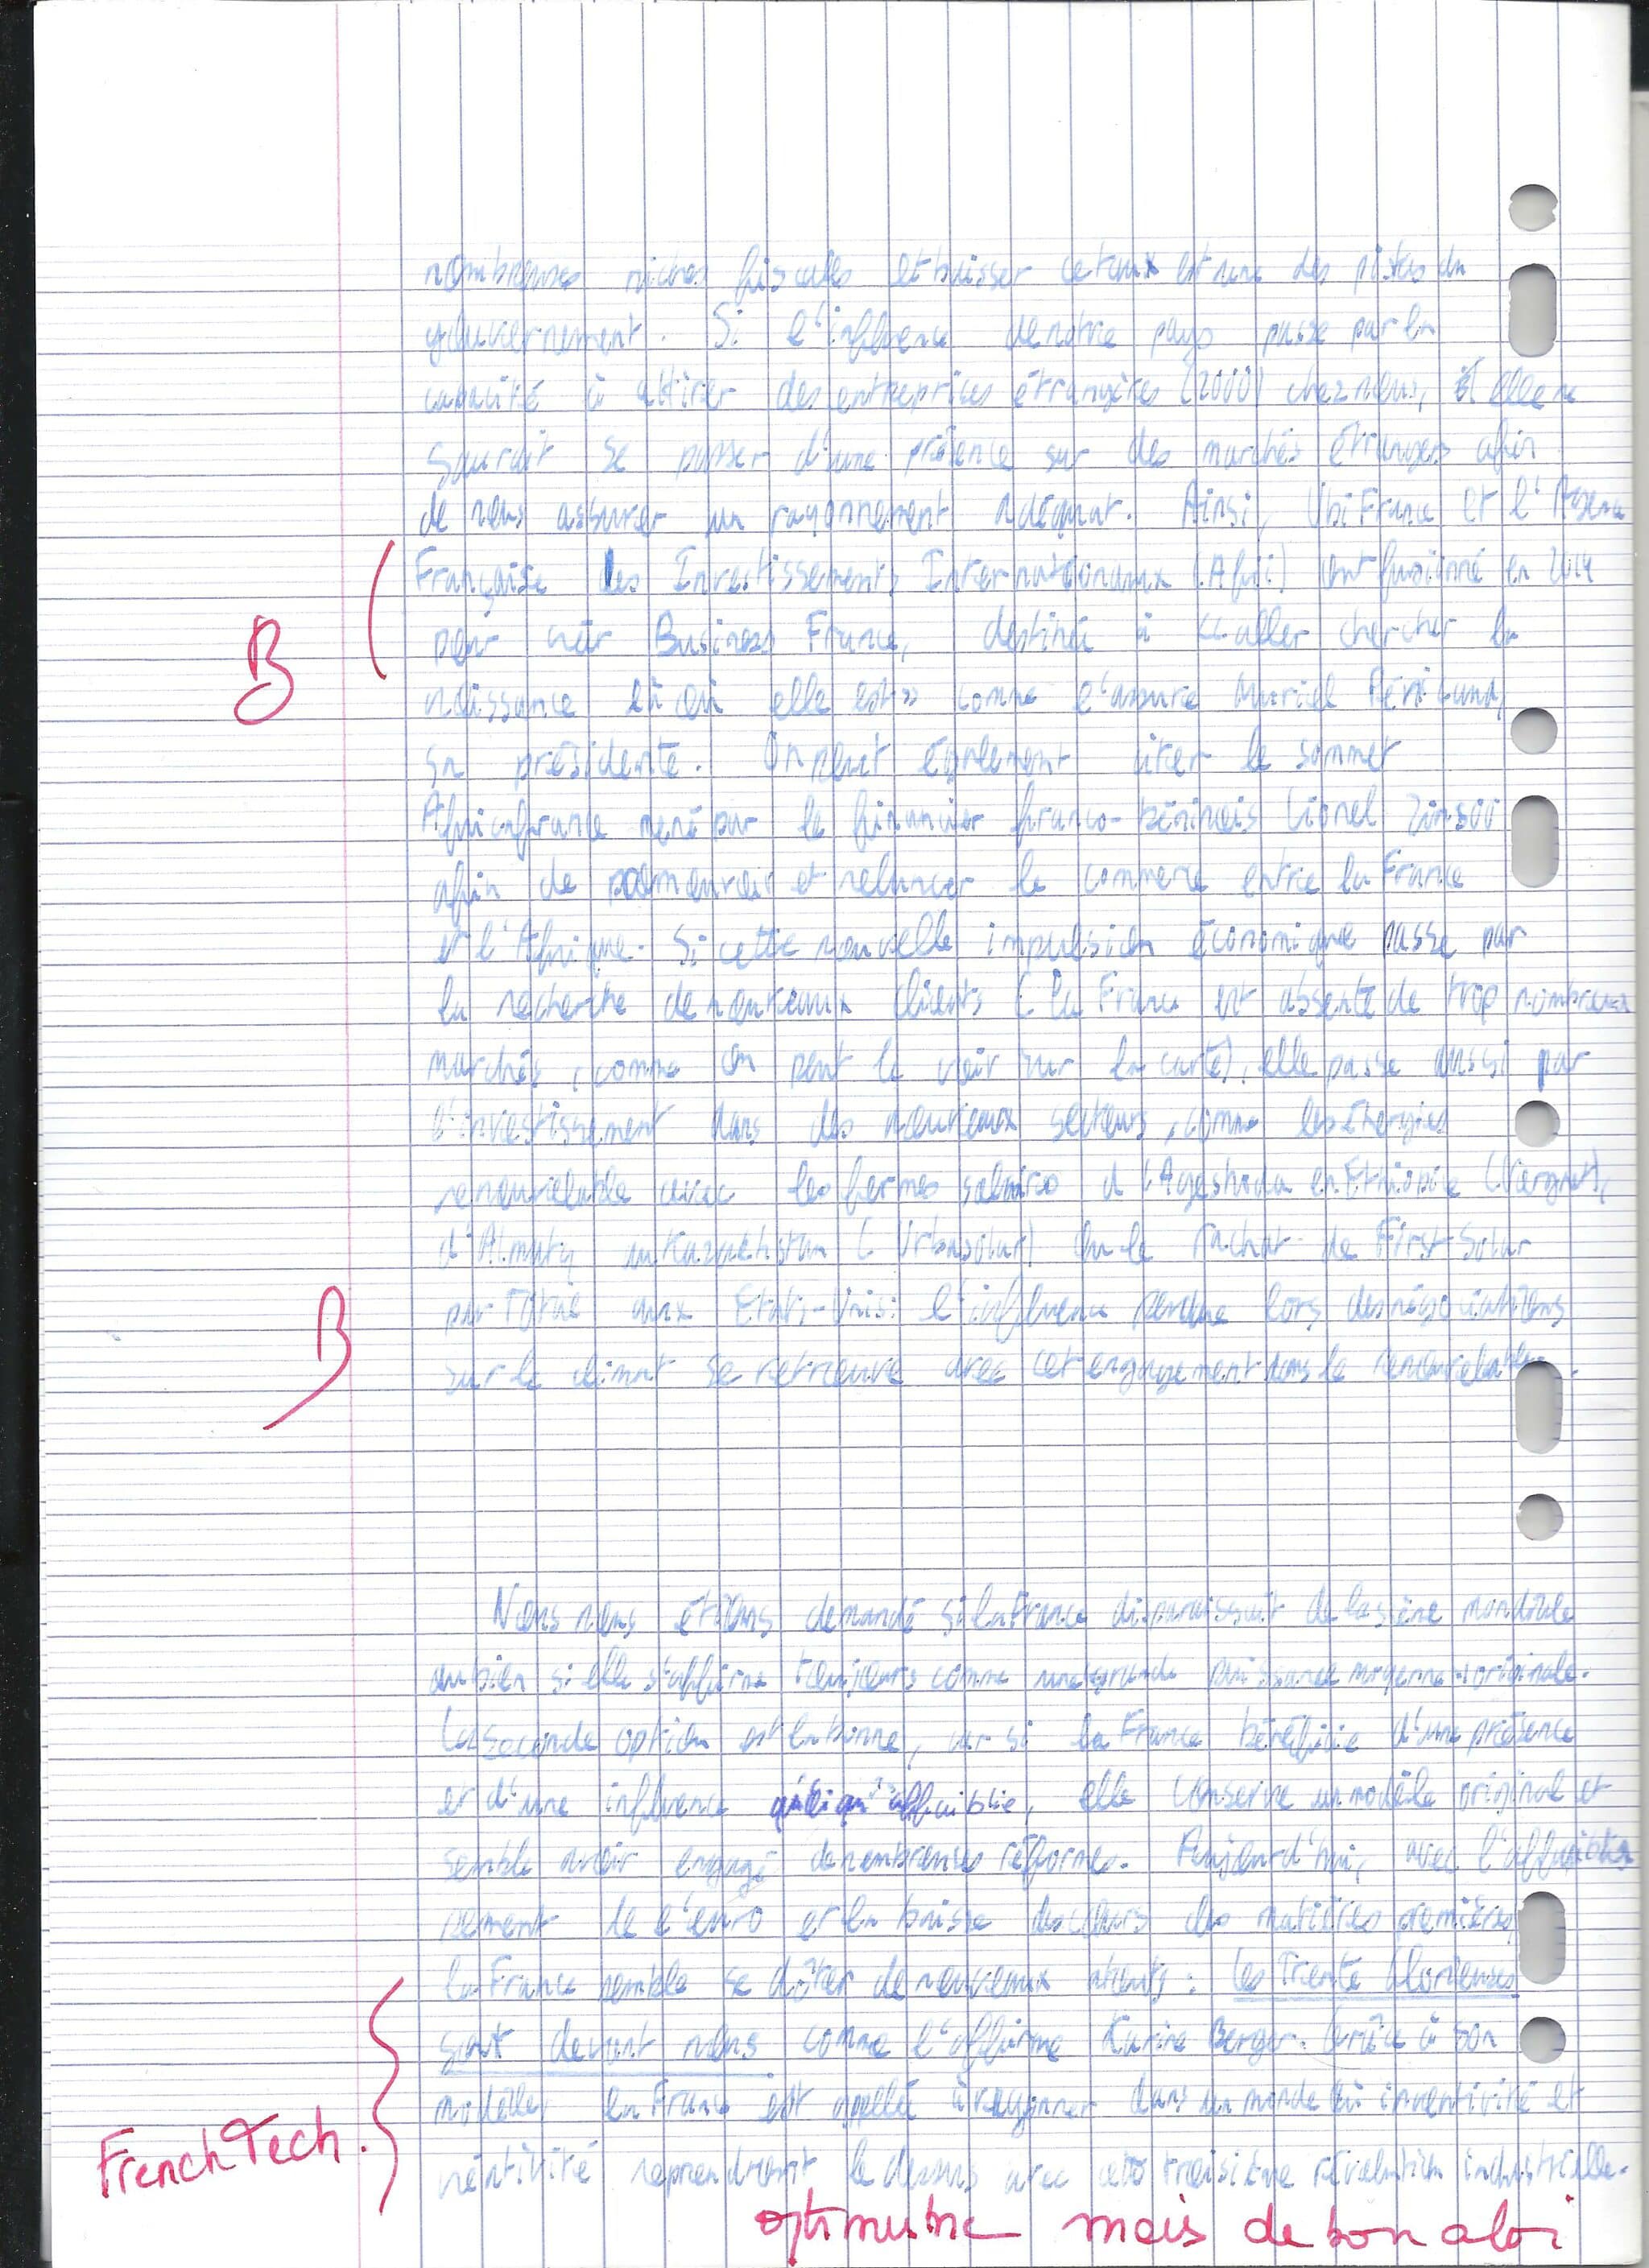 nombreuses niches fiscales et baisser ce taux est une des pistes du
gouvernement. Si l'influence de notre pays passe par la
capacité à attirer des entreprises étrangères (2000) chez nous, elle ne
saurait se passer d'une présence sur des marchés étrangers afin
de nous assurer un rayonnement adéquat. Ainsi, UbiFrance et l'Agence
Française des Investissements Internationaux (Afii) ont fusionné en 2014
B
pour créer Business France, destinée à « aller chercher la
croissance là où elle est » comme l'assure Muriel Pénicaud,
sa présidente. On peut également citer le sommet
Africafrance mené par le financier franco-béninois Lionel Zinsou
afin de promouvoir et relancer le commerce entre la France
et l'Afrique. Si cette nouvelle impulsion économique passe par
la recherche de nouveaux clients (la France est absente de trop nombreux
marchés, comme on peut le voir sur la carte), elle passe aussi par
l'investissement dans des nouveaux secteurs, comme les énergies
renouvelable avec les fermes d'Ageshoda en Ethiopie (Vergnet),
d'Almaty au Kazakhstan (Urbasolar) ou le rachat de First Solar
par Total aux Etats-Unis: l'influence perdue lors des négociations
B
sur le climat se retrouve avec cet engagement dans le renouvelable.
Nous nous étions demandé si la France disparaissait de la scène mondiale
ou bien si elle s'affirme toujours comme une grande puissance moyenne originale.
La seconde option est la bonne, car si la France bénéficie d'une présence
et d'une influence quoiqu'affaiblie, elle conserve un modèle original et
semble avoir engagé de nombreuses réformes. Aujourd'hui, avec
de l'euro et la baisse des cours des matières premières
la France semble se dôter de nouveaux atouts : Les Trente Glorieuses
sont devant nous comme l'affirme Karine Berger. Grâce à son
modèle, la France est appelée à rayonner dans un monde où inventivité et
French Tech.
créativité reprendront le dessus avec cette troisième révolution industrielle.
optimiste mais de bon aloi